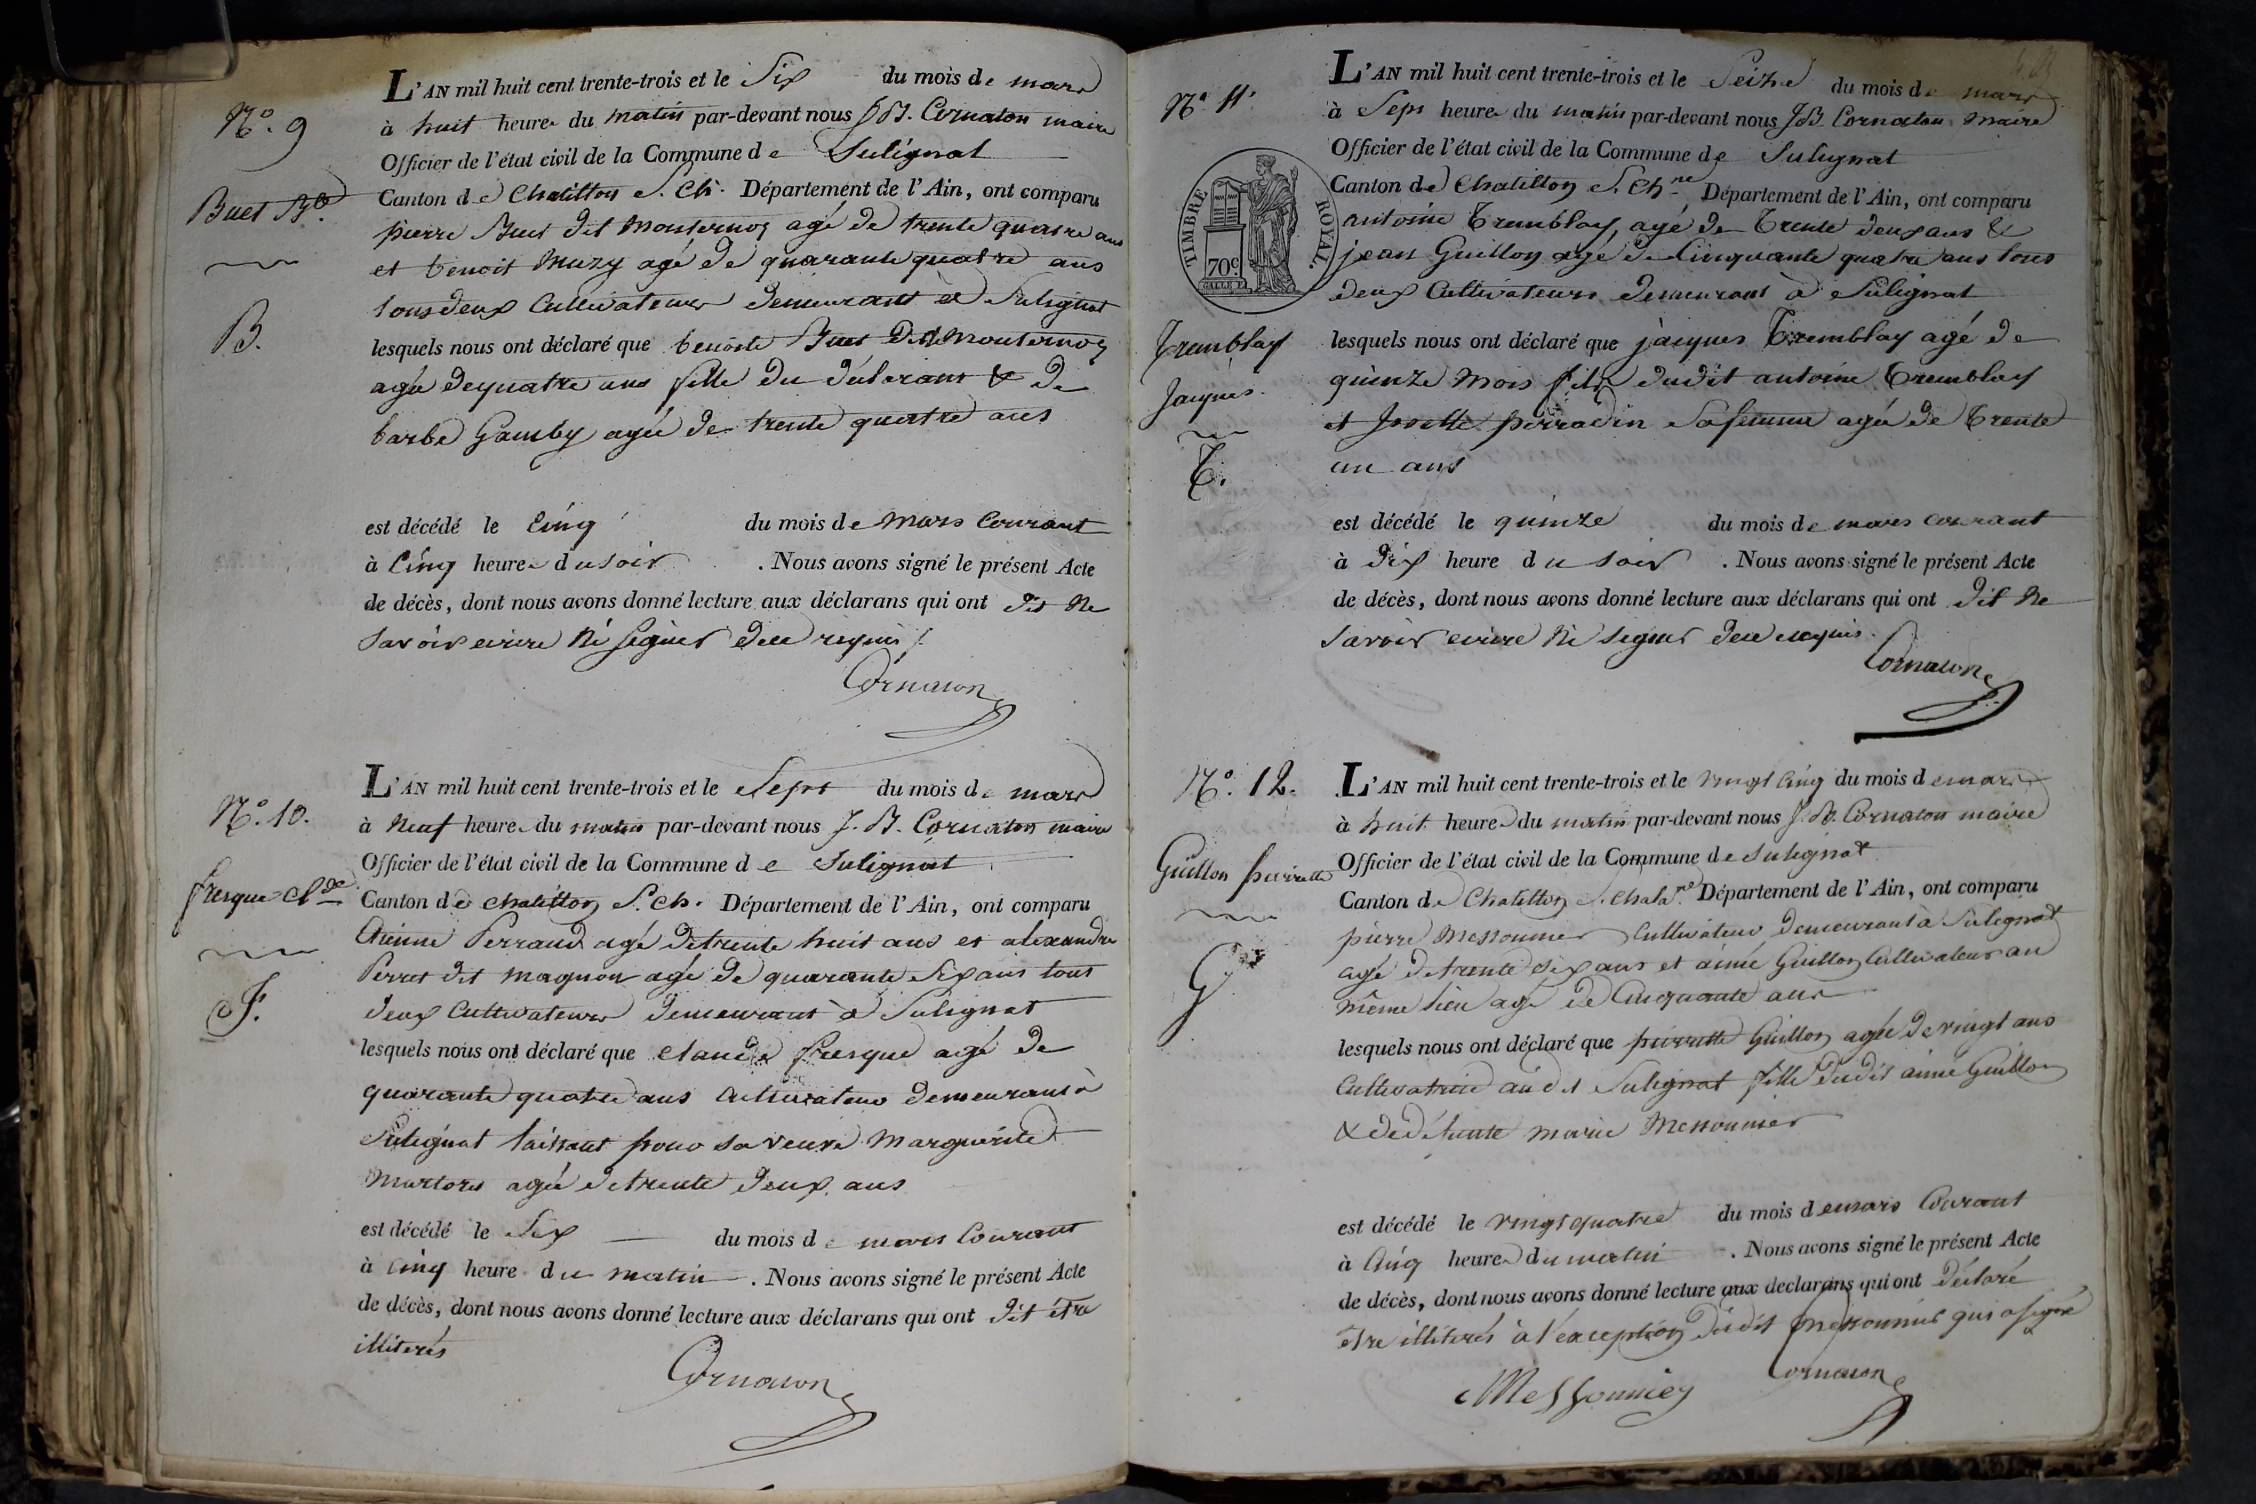 N.° 9
Buet B.te
B.
L'AN mil huit cent trente-trois et le Six du mois de mars
à huit heures du matin par-devant nous J B. Cornaton maire
Officier de l'état civil de la Commune de Sulignat
Canton de Chatillon S. Ch. Département de l'Ain, ont comparu
pierre Buet dit Monternoz agé de trente quatre ans
et benoit Muzy agé de quarante quatre ans
tous deux Cultivateurs demeurant à Sulignat
lesquels nous ont déclaré que benoite Buet Dit Monternoz
agée de quatre ans fille du déclarant & de
barbe Gamby agée de trente quatre ans
est décédé le Cinq du mois de mars Courant
à Cinq heures du soir . Nous avons signé le présent Acte
de décès, dont nous avons donné lecture aux déclarans qui ont dit ne
savoir ecrire ni signer de ce requis /.
Cornaton
N.° 10.
fresque Cl.de
F.
L'AN mil huit cent trente-trois et le Sept du mois de mars
à Neuf heures du matin par-devant nous J. B. Cornaton maire
Officier de l'état civil de la Commune de Sulignat
Canton de Chatillon S. Ch. Département de l'Ain, ont comparu
Etienne Perraud agé de trente huit ans et alexandre
Perret dit magnon agé de quarante Six ans tous
deux Cultivateurs demeurant à Sulignat
lesquels nous ont déclaré que claude fresque agé de
quarante quatre ans Cultivateur demeurant à
Sulignat laissant pour sa veuve Marguerite
agée de trente deux ans
est décédé le Six du mois de mars Courant
à Cinq heure du matin . Nous avons signé le présent Acte
de décès, dont nous avons donné lecture aux déclarans qui ont dit être
illiterés
Cornaton
N.° 11.
TIMBRE ROYAL.
70c
Tremblay
Jacques.
T.
L'AN mil huit cent trente-trois et le Seize du mois de mars
à Sept heures du matin par-devant nous J B Cornaton maire
Officier de l'état civil de la Commune de Sulignat
Canton de Chatillon S. Ch.ne Département de l'Ain, ont comparu
antoine Tremblay, agé de Trente deux ans &
jean Guillon agé de Cinquante quatre ans tous
deux Cultivateurs demeurant à Sulignat
lesquels nous ont déclaré que jacques Tremblay agé de
quinze mois fils dudit antoine Tremblay
et Josette perradin Sa femme agée de Trente
un ans
est décédé le quinze du mois de mars courant
à Dix heure du soir . Nous avons signé le présent Acte
de décès, dont nous avons donné lecture aux déclarans qui ont dit ne
savoir ecrire ni signer de ce requis.
Cornaton
N.° 12.
Guillon pierrette
G
L'AN mil huit cent trente-trois et le vingt Cinq du mois de mars
à huit heures du matin par-devant nous J. B. Cornaton maire
Officier de l'état civil de la Commune de Sulignat
Canton de Chatillon S. Chala.ne Département de l'Ain, ont comparu
pierre Messonnier Cultivateur demeurant à Sulignat
agé de trente six ans et aimé Guillon Cultivateur au
même lieu agé de Cinquante ans
lesquels nous ont déclaré que pierrette Guillon agée de vingt ans
Cultivatrice au dit Sulignat fille dudit aimé Guillon
& de défunte marie Messonnier
est décédé le vingt quatre du mois de mars Courant
à Cinq heures du matin . Nous avons signé le présent Acte
de décès, dont nous avons donné lecture aux declarans qui ont déclaré
être illiterés à l'exception dudit Messonnier qui a signé
Cornaton
Messonnier